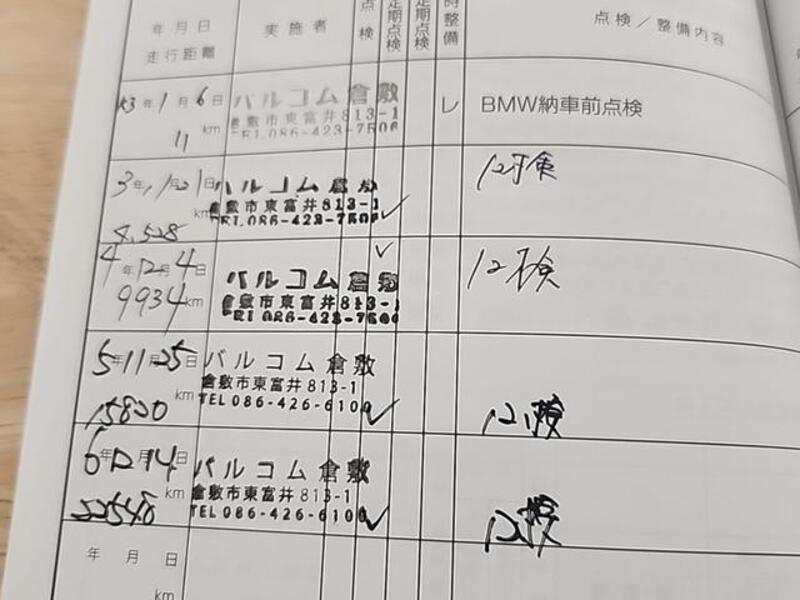 年月日
走行距離
実施者
点検
定期点検
定期点検
時整備
点検／整備内容
年1月6日
11 km
バルコム倉敷
倉敷市東富井813-1
TEL.086-423-7506
レ
BMW納車前点検
3年 月21日
4,528 km
バルコム倉敷
倉敷市東富井813-1
TEL.086-423-7506
✓
12検
4年12月4日
9934 km
バルコム倉敷
倉敷市東富井813-1
TEL.086-423-7506
✓
12検
5年11月25日
15820 km
バルコム倉敷
倉敷市東富井813-1
TEL 086-426-6100
✓
12検
6年12月14日
22548 km
バルコム倉敷
倉敷市東富井813-1
TEL 086-426-6100
✓
12検
年 月 日
km